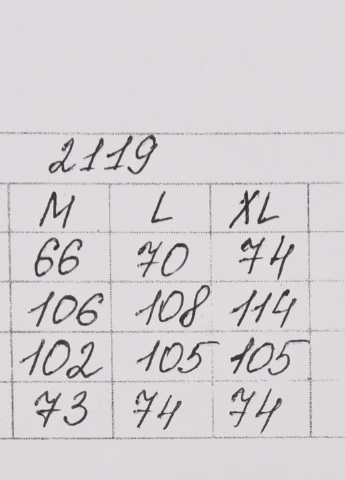 2119
M L XL
66 70 74
106 108 114
102 105 105
73 74 74